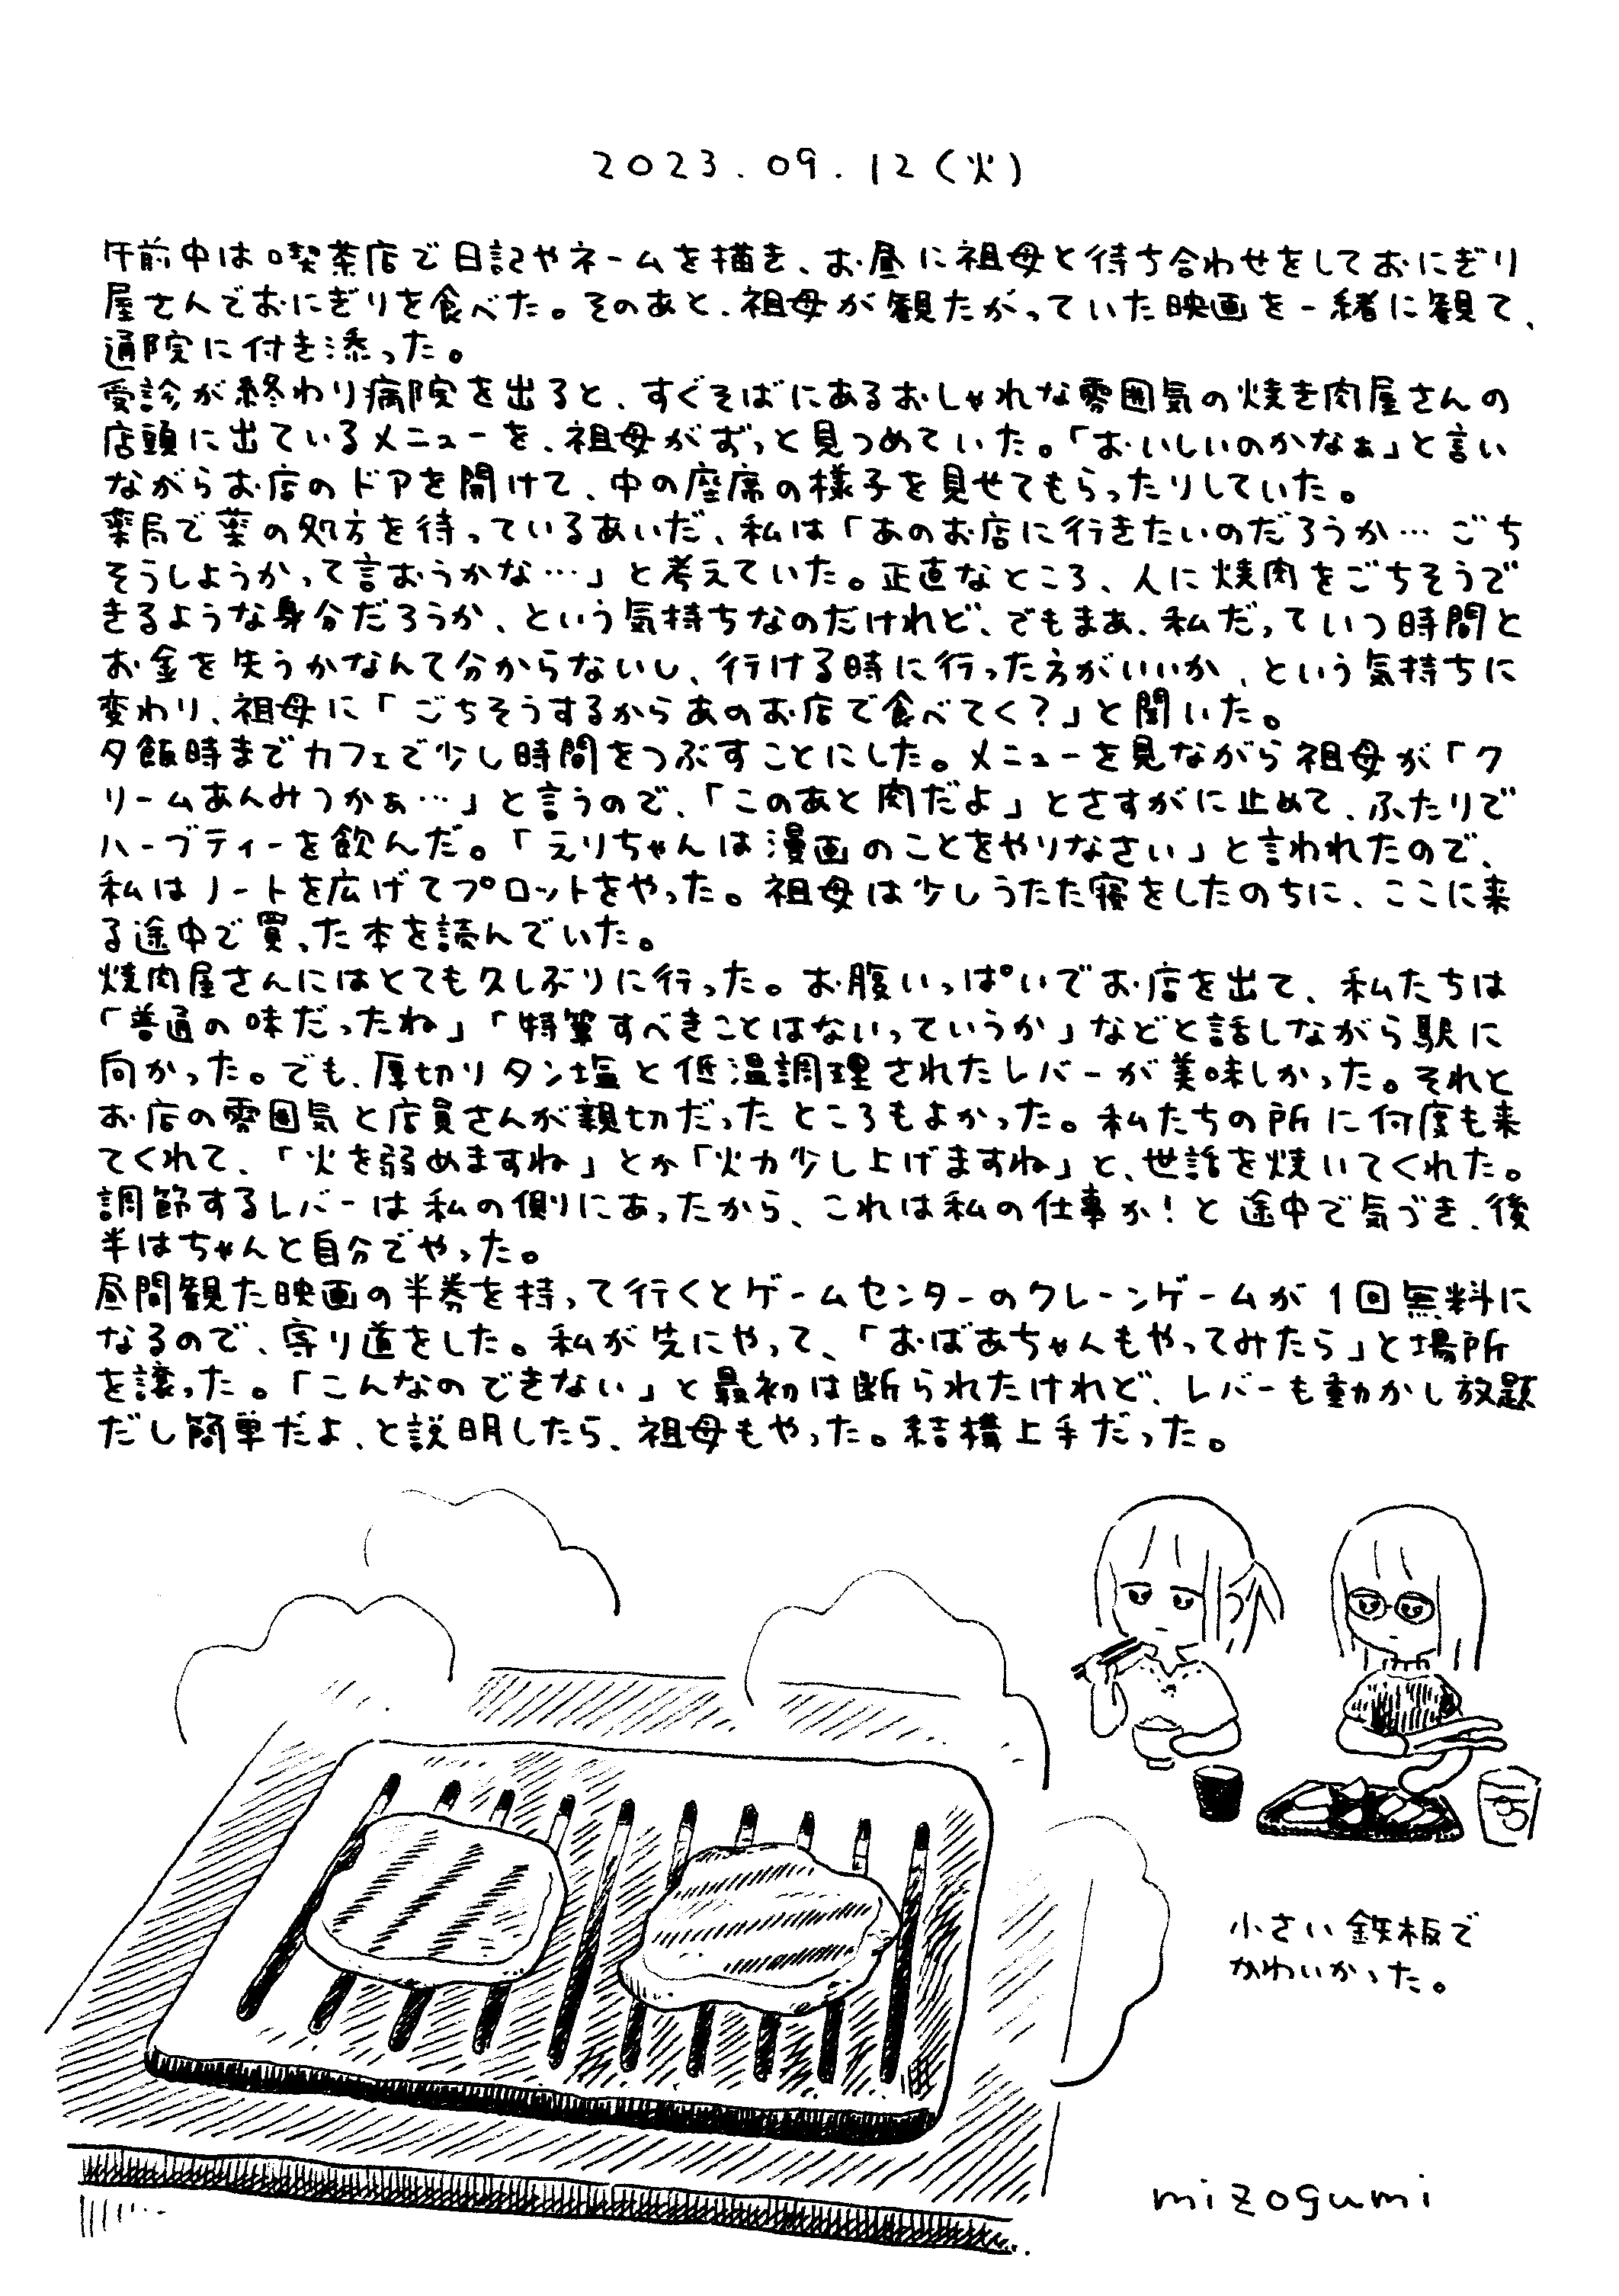 2023.09.12(火)
午前中は喫茶店で日記やネームを描き、お昼に祖母と待ち合わせをしておにぎり
屋さんでおにぎりを食べた。そのあと、祖母が観たがっていた映画を一緒に観て、
通院に付き添った。
受診が終わり病院を出ると、すぐそばにあるおしゃれな雰囲気の焼き肉屋さんの
店頭に出ているメニューを、祖母がずっと見つめていた。「おいしいのかなぁ」と言い
ながらお店のドアを開けて、中の座席の様子を見せてもらったりしていた。
薬局で薬の処方を待っているあいだ、私は「あのお店に行きたいのだろうか… ごち
そうしようかって言おうかな…」と考えていた。正直なところ、人に焼肉をごちそうで
きるような身分だろうか、という気持ちなのだけれど、でもまあ、私だっていつ時間と
お金を失うかなんて分からないし、行ける時に行った方がいいか、という気持ちに
変わり、祖母に「ごちそうするからあのお店で食べてく?」と聞いた。
夕飯時までカフェで少し時間をつぶすことにした。メニューを見ながら祖母が「ク
リームあんみつかぁ…」と言うので、「このあと肉だよ」とさすがに止めて、ふたりで
ハーブティーを飲んだ。「えりちゃんは漫画のことをやりなさい」と言われたので、
私はノートを広げてプロットをやった。祖母は少しうたた寝をしたのちに、ここに来
る途中で買った本を読んでいた。
焼肉屋さんにはとても久しぶりに行った。お腹いっぱいでお店を出て、私たちは
「普通の味だったね」「特筆すべきことはないっていうか」などと話しながら駅に
向かった。でも、厚切りタン塩と低温調理されたレバーが美味しかった。それと
お店の雰囲気と店員さんが親切だったところもよかった。私たちの所に何度も来
てくれて、「火を弱めますね」とか「火力少し上げますね」と、世話を焼いてくれた。
調節するレバーは私の側にあったから、これは私の仕事か!と途中で気づき、後
半はちゃんと自分でやった。
昼間観た映画の半券を持って行くとゲームセンターのクレーンゲームが1回無料に
なるので、寄り道をした。私が先にやって、「おばあちゃんもやってみたら」と場所
を譲った。「こんなのできない」と最初は断られたけれど、レバーも動かし放題
だし簡単だよ、と説明したら、祖母もやった。結構上手だった。
小さい鉄板で
かわいかった。
mizogumi